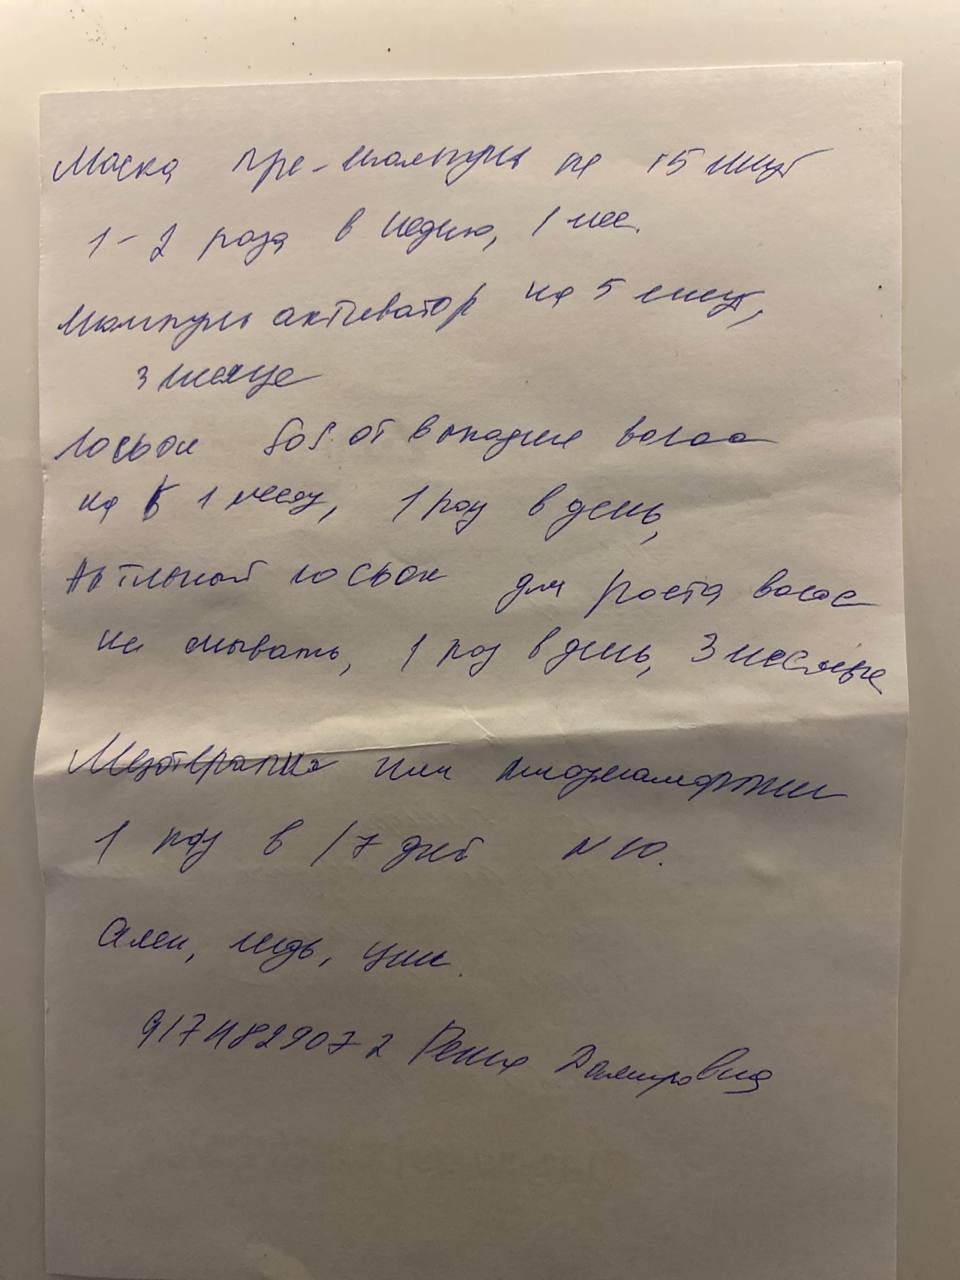 Маска пре-шампунь на 15 минут
1-2 раза в неделю, 1 мес.
Шампунь активатор на 5 минут,
3 месяца
Лосьон SOS от выпадения волос
на 1 месяц, 1 раз в день,
Активный лосьон для роста волос
не смывать, 1 раз в день, 3 месяца
Мезотерапия или
1 раз в 7 дней N 10.
Селен, медь, цинк.
9174829072 Дамировна